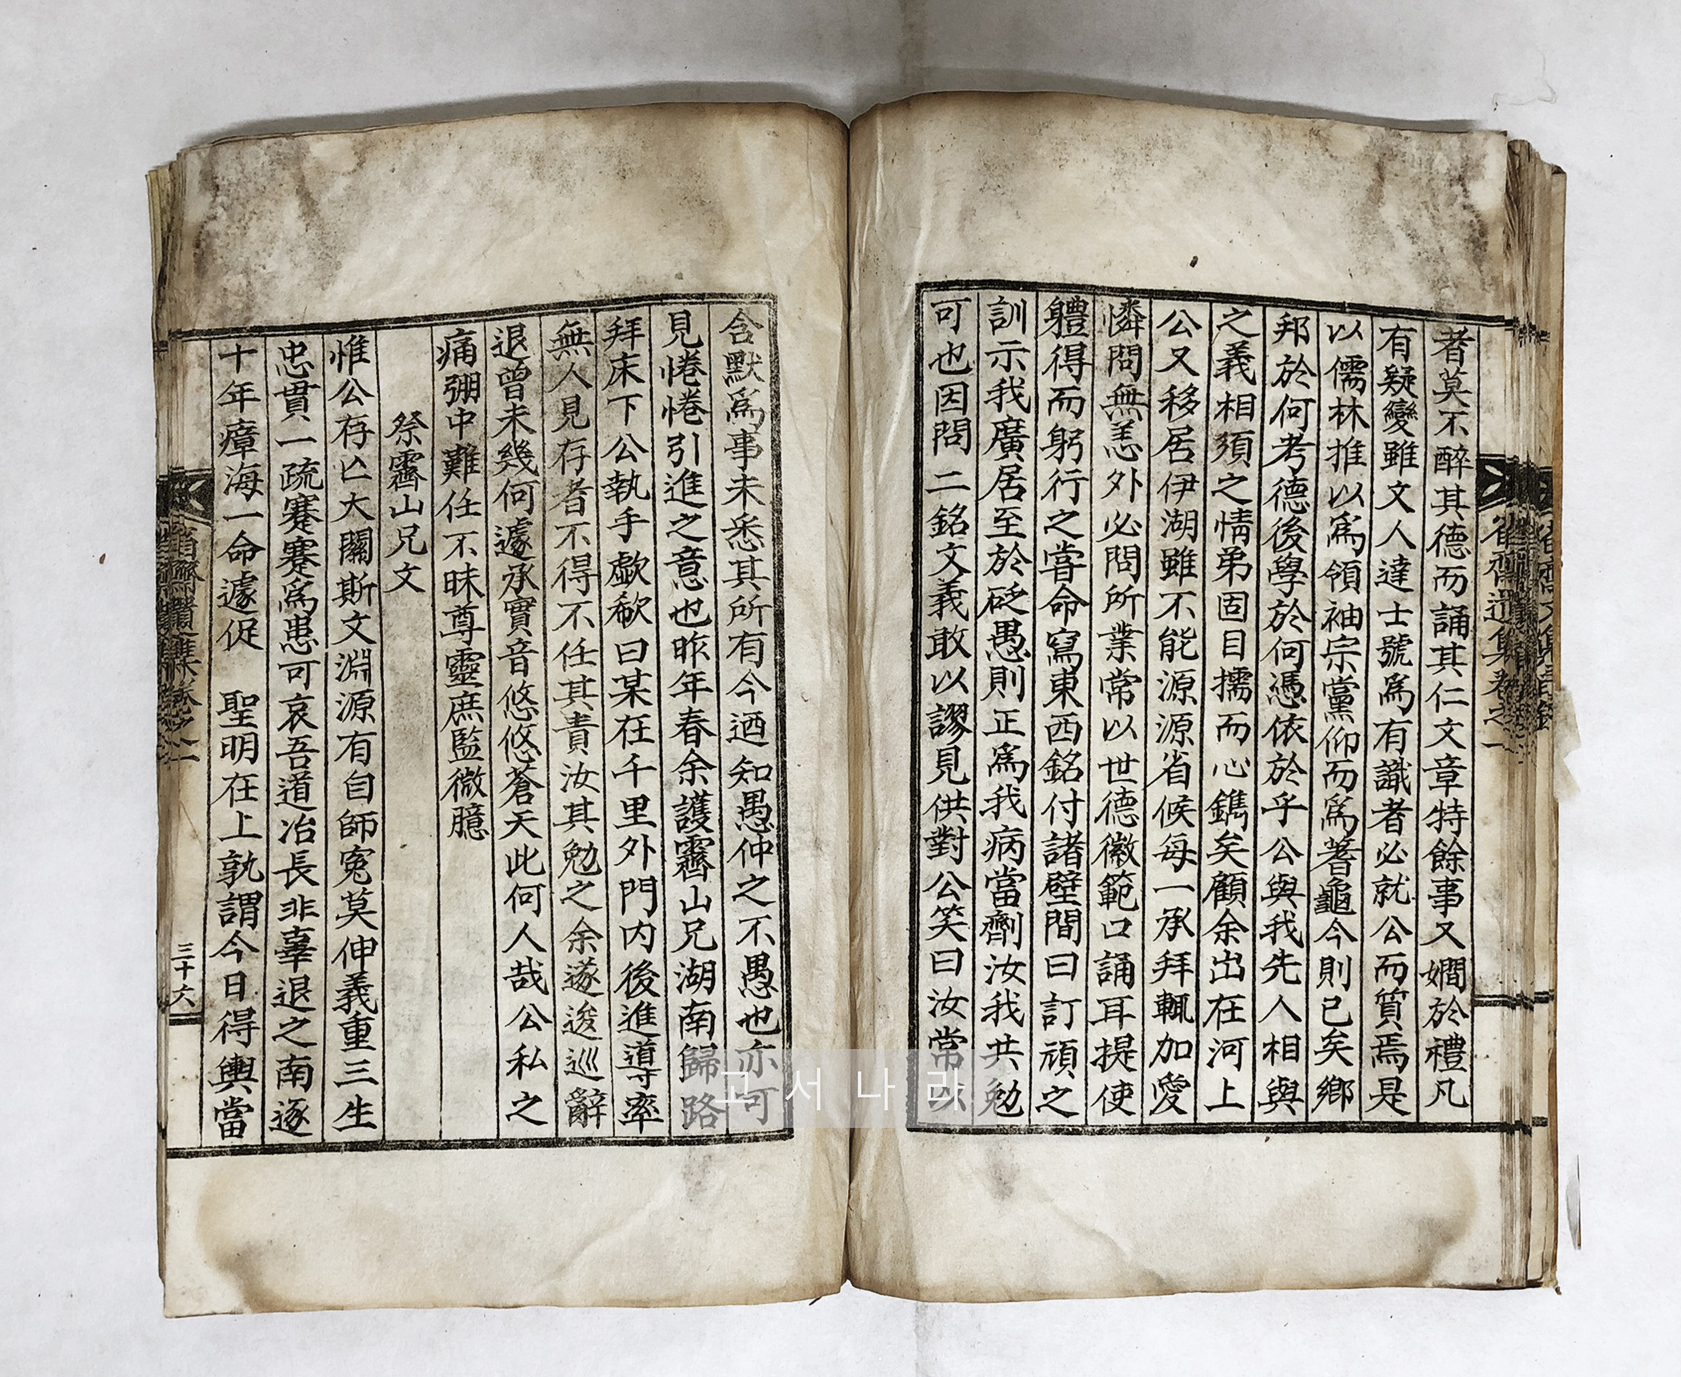 者莫不醉其德而誦其仁文章特餘事又嫺於禮凡
有疑變雖文人達士號爲有識者必就公而質焉是
以儒林推以爲領袖宗黨仰而爲蓍龜今則已矣鄉
邦於何考德後學於何憑依於乎公與我先人相與
之義相須之情弟固目擩而心鐫矣顧余出在河上
公又移居伊湖雖不能源源省候每一承拜輒加愛
憐問無恙外必問所業常以世德徽範口誦耳提使
軆得而躬行之嘗命寫東西銘付諸壁間曰訂頑之
訓示我廣居至於砭愚則正爲我病當劑汝我共勉
可也因問二銘文義敢以謬見供對公笑曰汝常
含默爲事未悉其所有今迺知愚仲之不愚也亦可
見惓惓引進之意也昨年春余護霽山兄湖南歸路
拜床下公執手歔欷曰某在千里外門內後進導率
無人見存者不得不任其責汝其勉之余遂逡巡辭
退曾未幾何遽承實音悠悠蒼天此何人哉公私之
痛弸中難任不昧尊靈庶監微臆
祭霽山兄文
惟公存亾大關斯文淵源有自師寃莫伸義重三生
忠貫一疏蹇蹇爲患可哀吾道冶長非辜退之南逐
十年瘴海一命遽促 聖明在上孰謂今日得輿當
三十六
고서나라